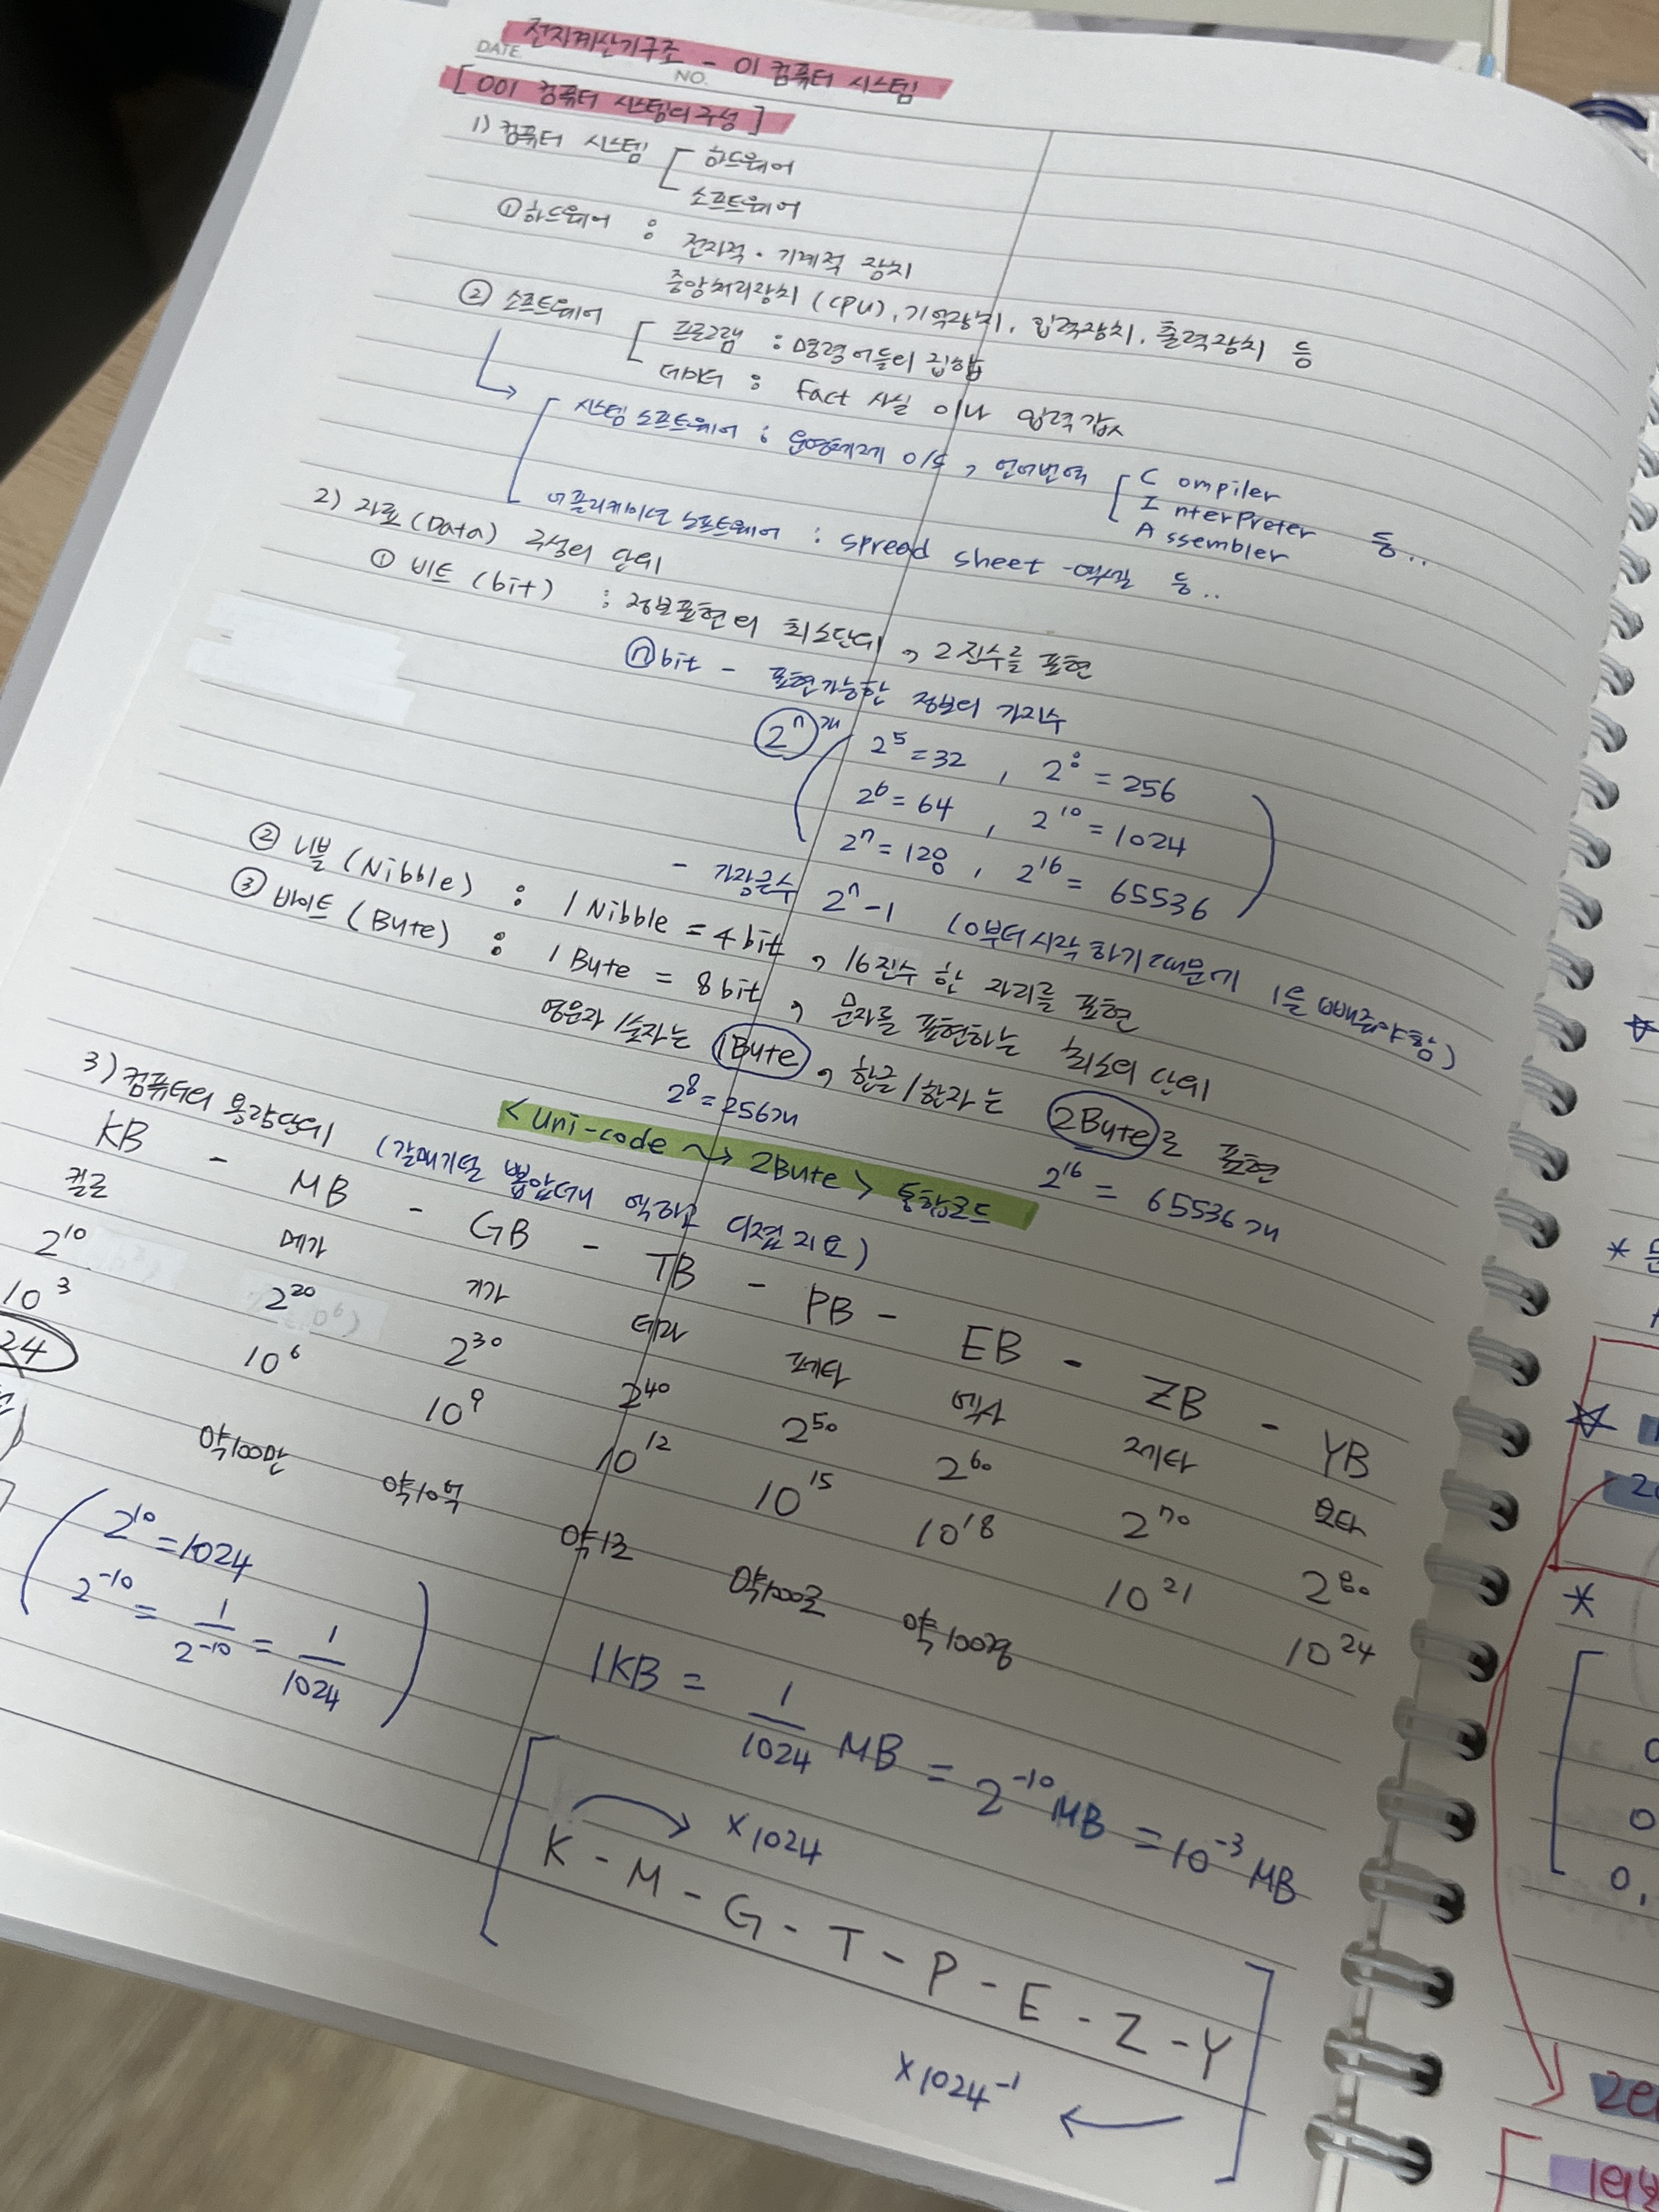 전자계산기구조 - 01 컴퓨터 시스템
DATE. NO.
[001 컴퓨터 시스템의 구성]
1) 컴퓨터 시스템 [ 하드웨어
소프트웨어
① 하드웨어 : 전자적·기계적 장치
중앙처리장치 (CPU), 기억장치, 입력장치, 출력장치 등
② 소프트웨어 [ 프로그램 : 명령어들의 집합
데이터 : Fact 사실 이나 입력값
→ [ 시스템 소프트웨어 : 운영체제 O/S, 언어번역 [ C ompiler
I nterpreter
A ssembler 등..
어플리케이션 소프트웨어 : spread sheet - 엑셀 등..
2) 자료 (Data) 구성의 단위
① 비트 (bit) : 정보표현의 최소단위, 2진수를 표현
ⓝ bit - 표현가능한 정보의 가지수
2ⁿ개 ( 2⁵ = 32 , 2⁸ = 256
2⁶ = 64 , 2¹⁰ = 1024
2⁷ = 128 , 2¹⁶ = 65536 )
- 가장큰수 2ⁿ-1 (0부터 시작하기 때문에 1을 빼줘야함)
② 니블 (Nibble) : 1 Nibble = 4 bit, 16진수 한 자리를 표현
③ 바이트 (Byte) : 1 Byte = 8 bit, 문자를 표현하는 최소의 단위
영문자/숫자는 1Byte, 한글/한자는 2Byte로 표현
2⁸ = 256개 2¹⁶ = 65536개
<Uni-code ⇝ 2Byte> 통합코드
3) 컴퓨터의 용량단위 (갈매기털 뽑았더니
KB - MB - GB - TB - PB - EB - ZB - YB
킬로 메가 기가 테라 페타 엑사 제타 요타
2¹⁰ 2²⁰ 2³⁰ 2⁴⁰ 2⁵⁰ 2⁶⁰ 2⁷⁰ 2⁸⁰
10³ 10⁶ 10⁹ 10¹² 10¹⁵ 10¹⁸ 10²¹ 10²⁴
24 약100만 약10억 약1조 약1000조 약100경
( 2¹⁰ = 1024
2⁻¹⁰ = 1/2⁻¹⁰ = 1/1024 )
1KB = 1/1024 MB = 2⁻¹⁰ MB = 10⁻³ MB
[ → ×1024
K - M - G - T - P - E - Z - Y ]
×1024⁻¹ ←